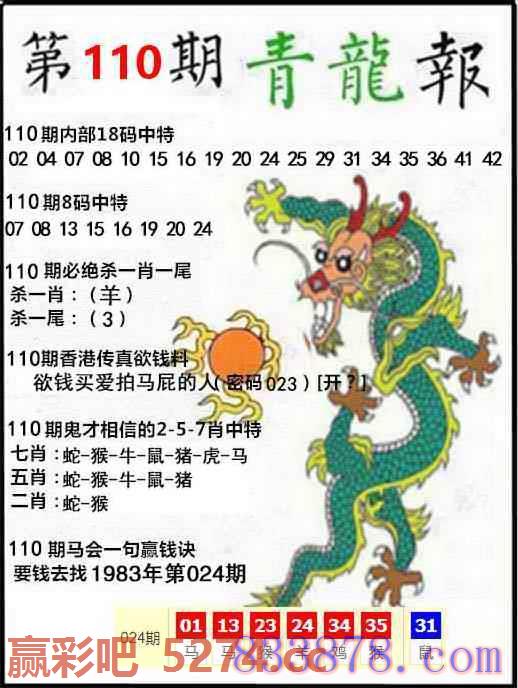 第110期 青龍報
110期内部18码中特
02 04 07 08 10 15 16 19 20 24 25 29 31 34 35 36 41 42
110期8码中特
07 08 13 15 16 19 20 24
110期必绝杀一肖一尾
杀一肖：（羊）
杀一尾：（3）
110期香港传真欲钱料
欲钱买爱拍马屁的人(密码023)[开?]
110期鬼才相信的2-5-7肖中特
七肖：蛇-猴-牛-鼠-猪-虎-马
五肖：蛇-猴-牛-鼠-猪
二肖：蛇-猴
110期马会一句赢钱诀
要钱去找1983年第024期
024期 01 13 23 24 34 35 31
马 马 猴 羊 鸡 猴 鼠
赢彩吧 5274.cc